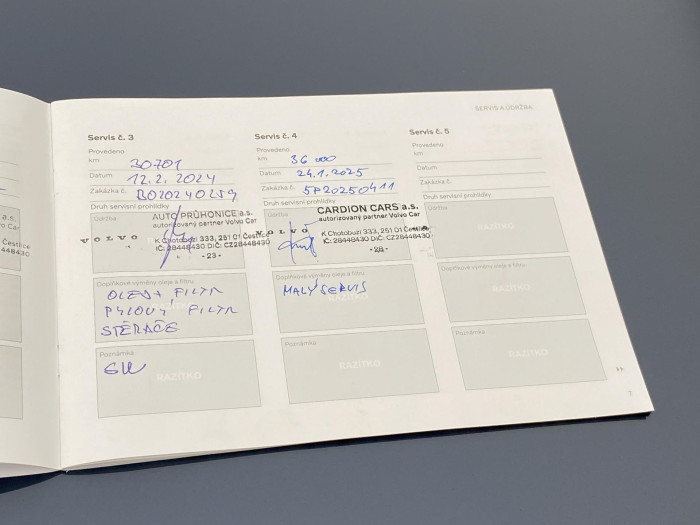 SERVIS A ÚDRŽBA
Servis č. 3
Provedeno
km 30701
Datum 12.2.2024
Zakázka č. BO20240259
Druh servisní prohlídky
Údržba
AUTO PRŮHONICE a.s.
autorizovaný partner Volvo Car
VOLVO
K Chotobuzi 333, 251 01 Čestlice
IČ: 28448430 DIČ: CZ28448430
- 23 -
Doplňkové výměny oleje a filtru
OLEJ + FILTR
PYLOVÝ FILTR
STĚRAČE
Poznámka
RAZÍTKO
Servis č. 4
Provedeno
km 36 000
Datum 24.1.2025
Zakázka č. SP20250411
Druh servisní prohlídky
Údržba
CARDION CARS a.s.
autorizovaný partner Volvo Car
VOLVO
K Chotobuzi 333, 251 01 Čestlice
IČ: 28448430 DIČ: CZ28448430
- 28 -
Doplňkové výměny oleje a filtru
MALÝ SERVIS
Poznámka
RAZÍTKO
Servis č. 5
Provedeno
km
Datum
Zakázka č.
Druh servisní prohlídky
Údržba
RAZÍTKO
Doplňkové výměny oleje a filtru
RAZÍTKO
Poznámka
RAZÍTKO
7
a.s.
Car
Čestlice
48430